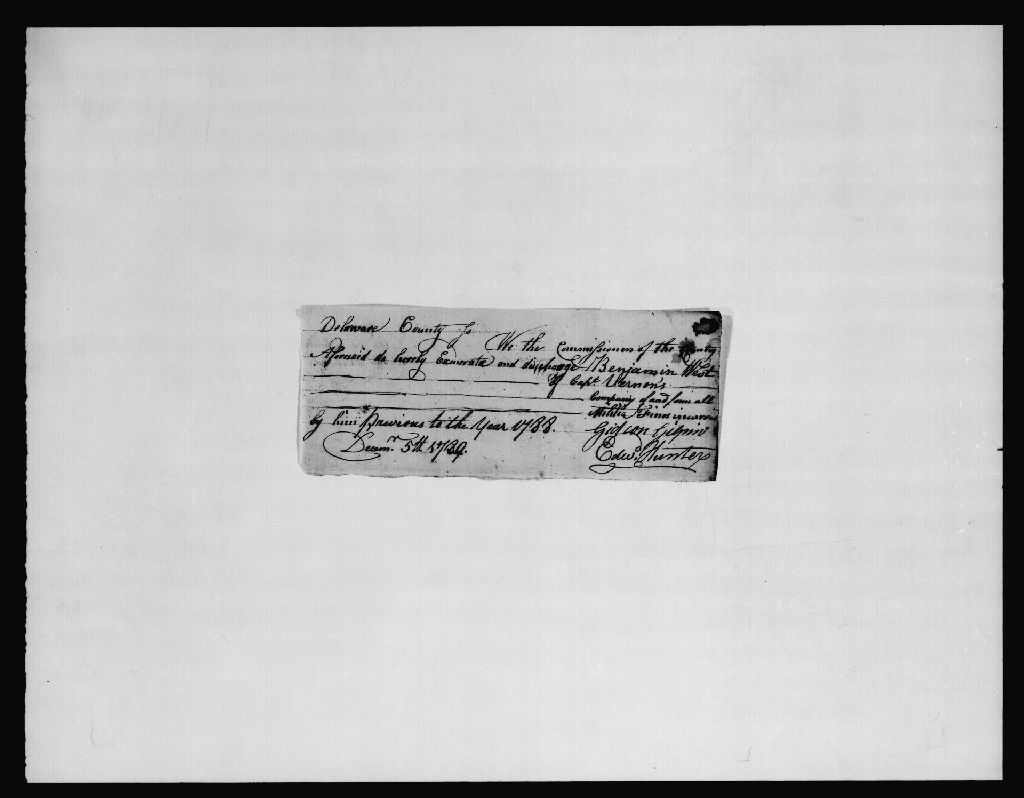 Delaware County ss
We the Commissioners of the County
Aforesaid do hereby Exonerate and discharge Benjamin West
Of Capt. Vernon's
Company of and from all
Militia Fines incurred
by him previous to the Year 1788.
Decemr. 5th 1789.
Gideon Gilpin
Edwd. Hunter